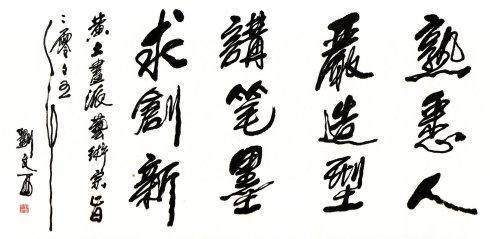 熟悉人
嚴造型
講笔墨
求創新
黄土畫派藝術宗旨
二零一五
劉文西